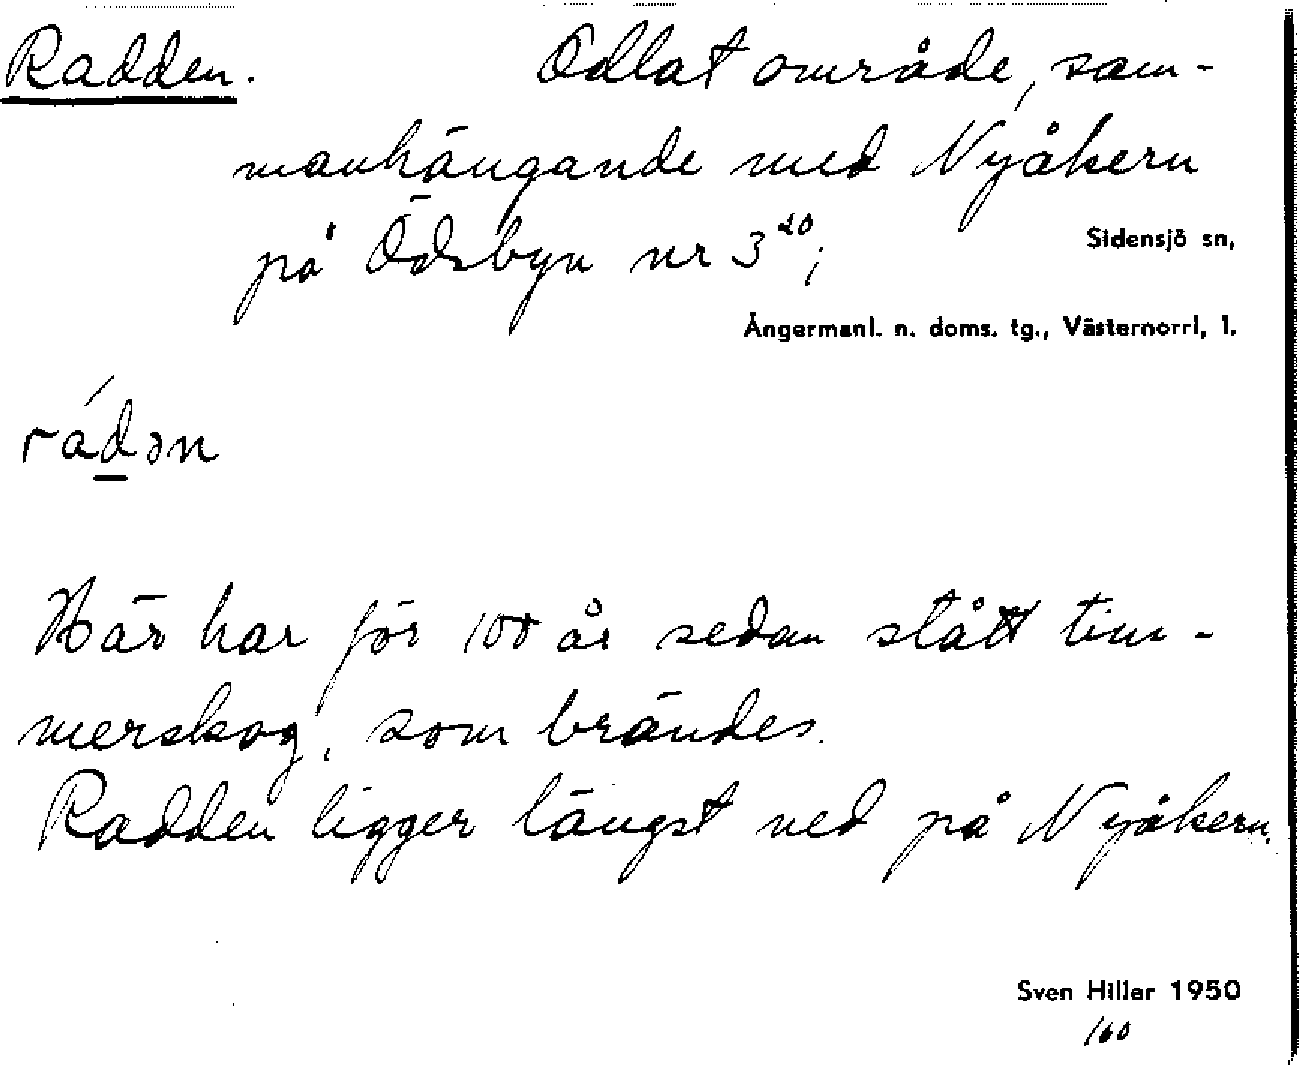 Radden. Odlat område, sam-
manhängande med Nyåkern
på Ödsbyn nr 3²⁰;
Sidensjö sn,
Ångermanl. n. doms. tg., Västernorrl, l.
rádən
Här har för 100 år sedan stått tim-
merskog, som brändes.
Radden ligger längst ned på Nyåkern.
Sven Hillar 1950
/60